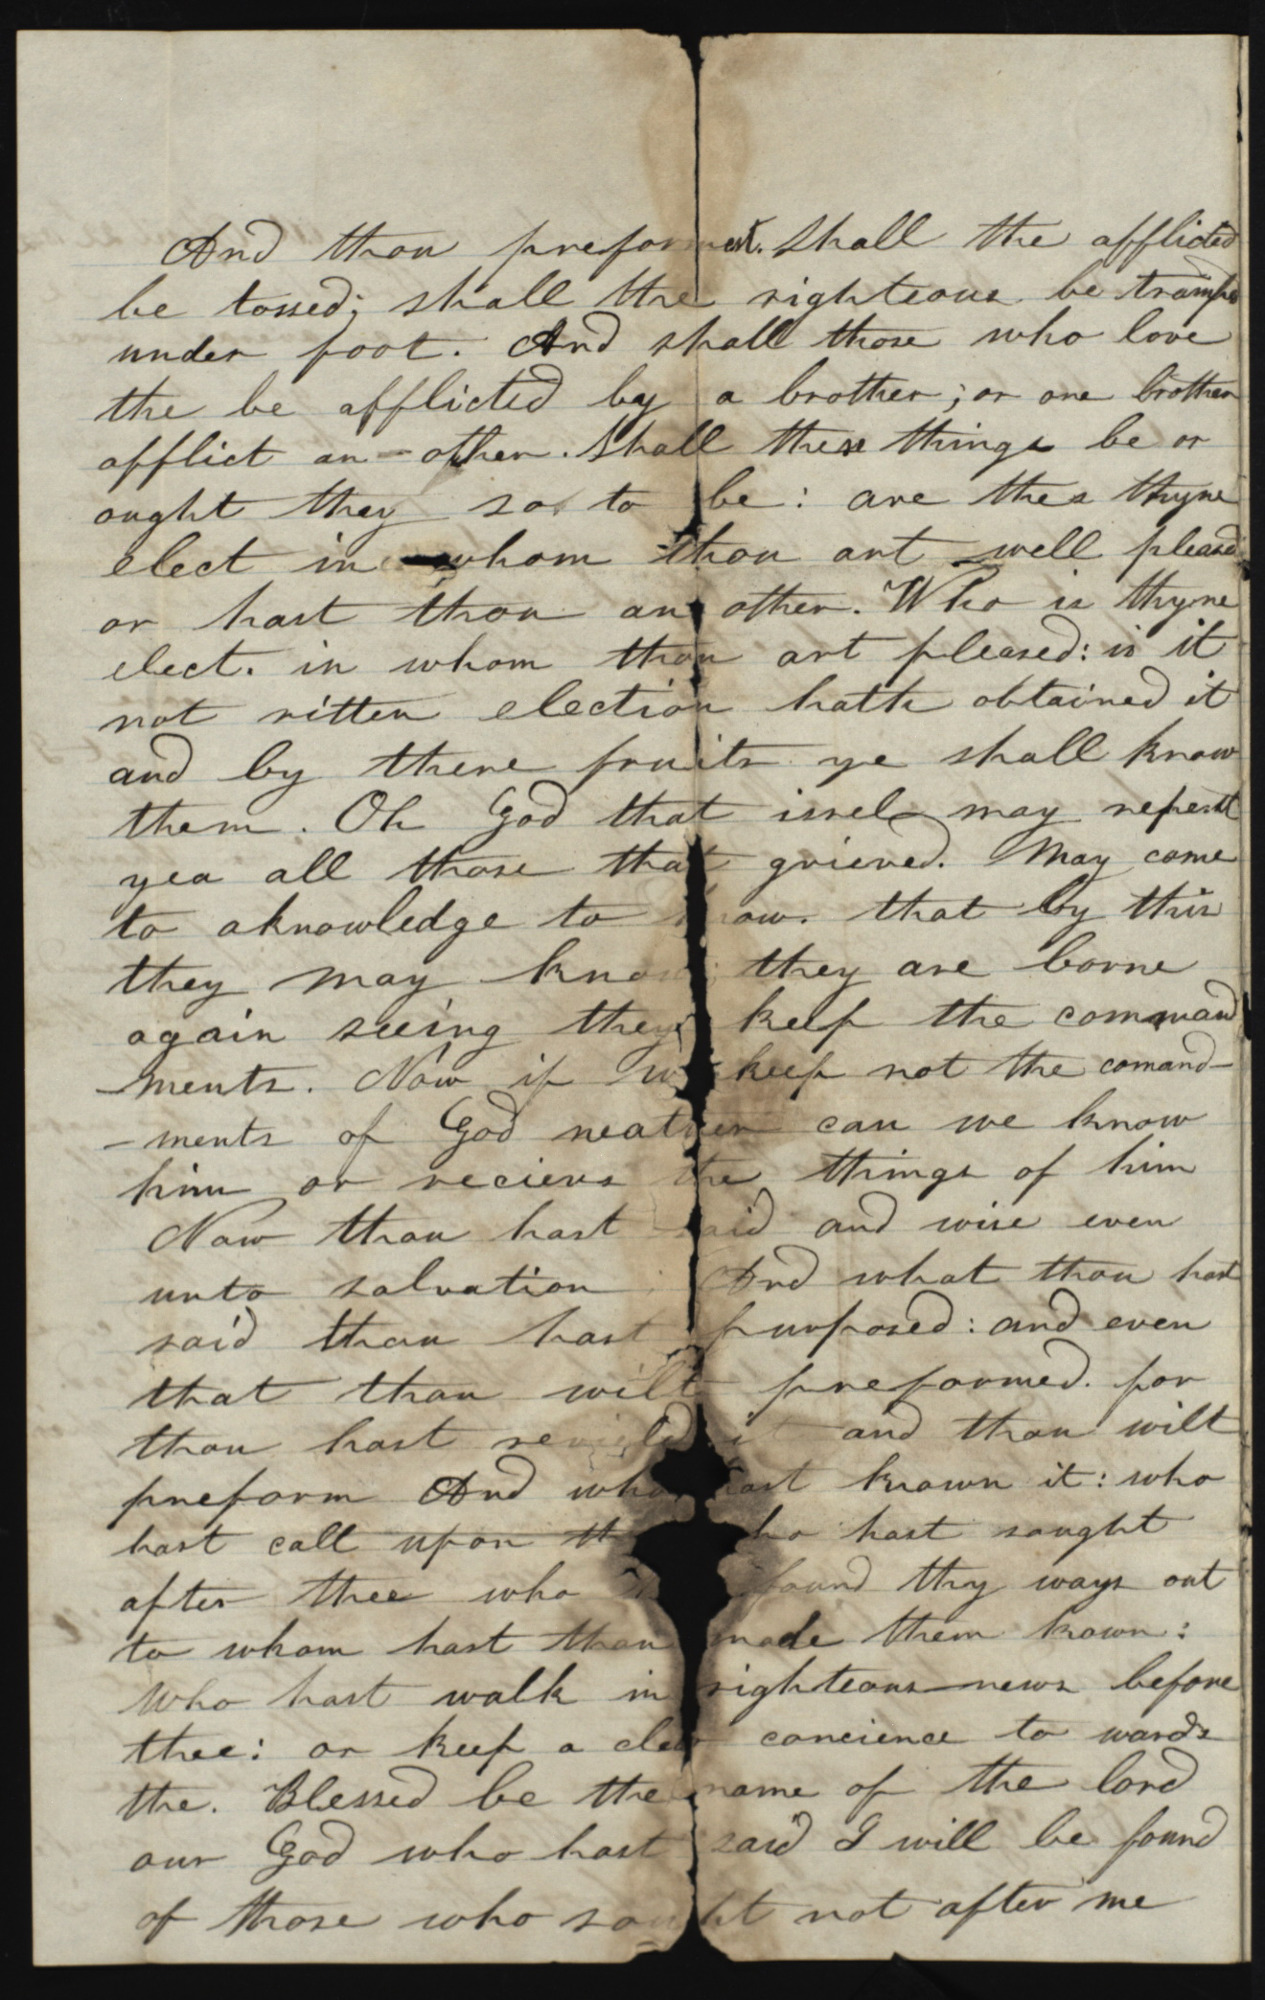 And thou preformest. Shall the afflicted
be tossed; shall the righteous be trampe
under foot. And shall those who love
the be afflicted by a brother; or one brother
afflict an-other. Shall these things be or
ought they so to be: are thes thyne
elect in whom thou art well pleased
or hast thou an other. Who is thyne
elect. in whom thou art pleased: is it
not ritten election hath obtained it
and by there fruits ye shall know
them. Oh God that isrel may repent
yea all those that grieved. May come
to aknowledge to know. that by this
they may know they are borne
again seeing they keep the command
-ments. Now if we keep not the comand-
-ments of God neather can we know
him or recieve the things of him
Now thou hast said and wise even
unto salvation; And what thou hast
said thou hast purposed: and even
that thou wilt preformed. for
thou hast it and thou wilt
preform And who hast known it: who
hast call upon who hast sought
after thee who found thy ways out
to whom hast thou made them kown:
Who hast walk in righteous-news before
thee: or keep a clear concience to wards
the. Blessed be the name of the lord
our God who hast said I will be found
of those who sought not after me